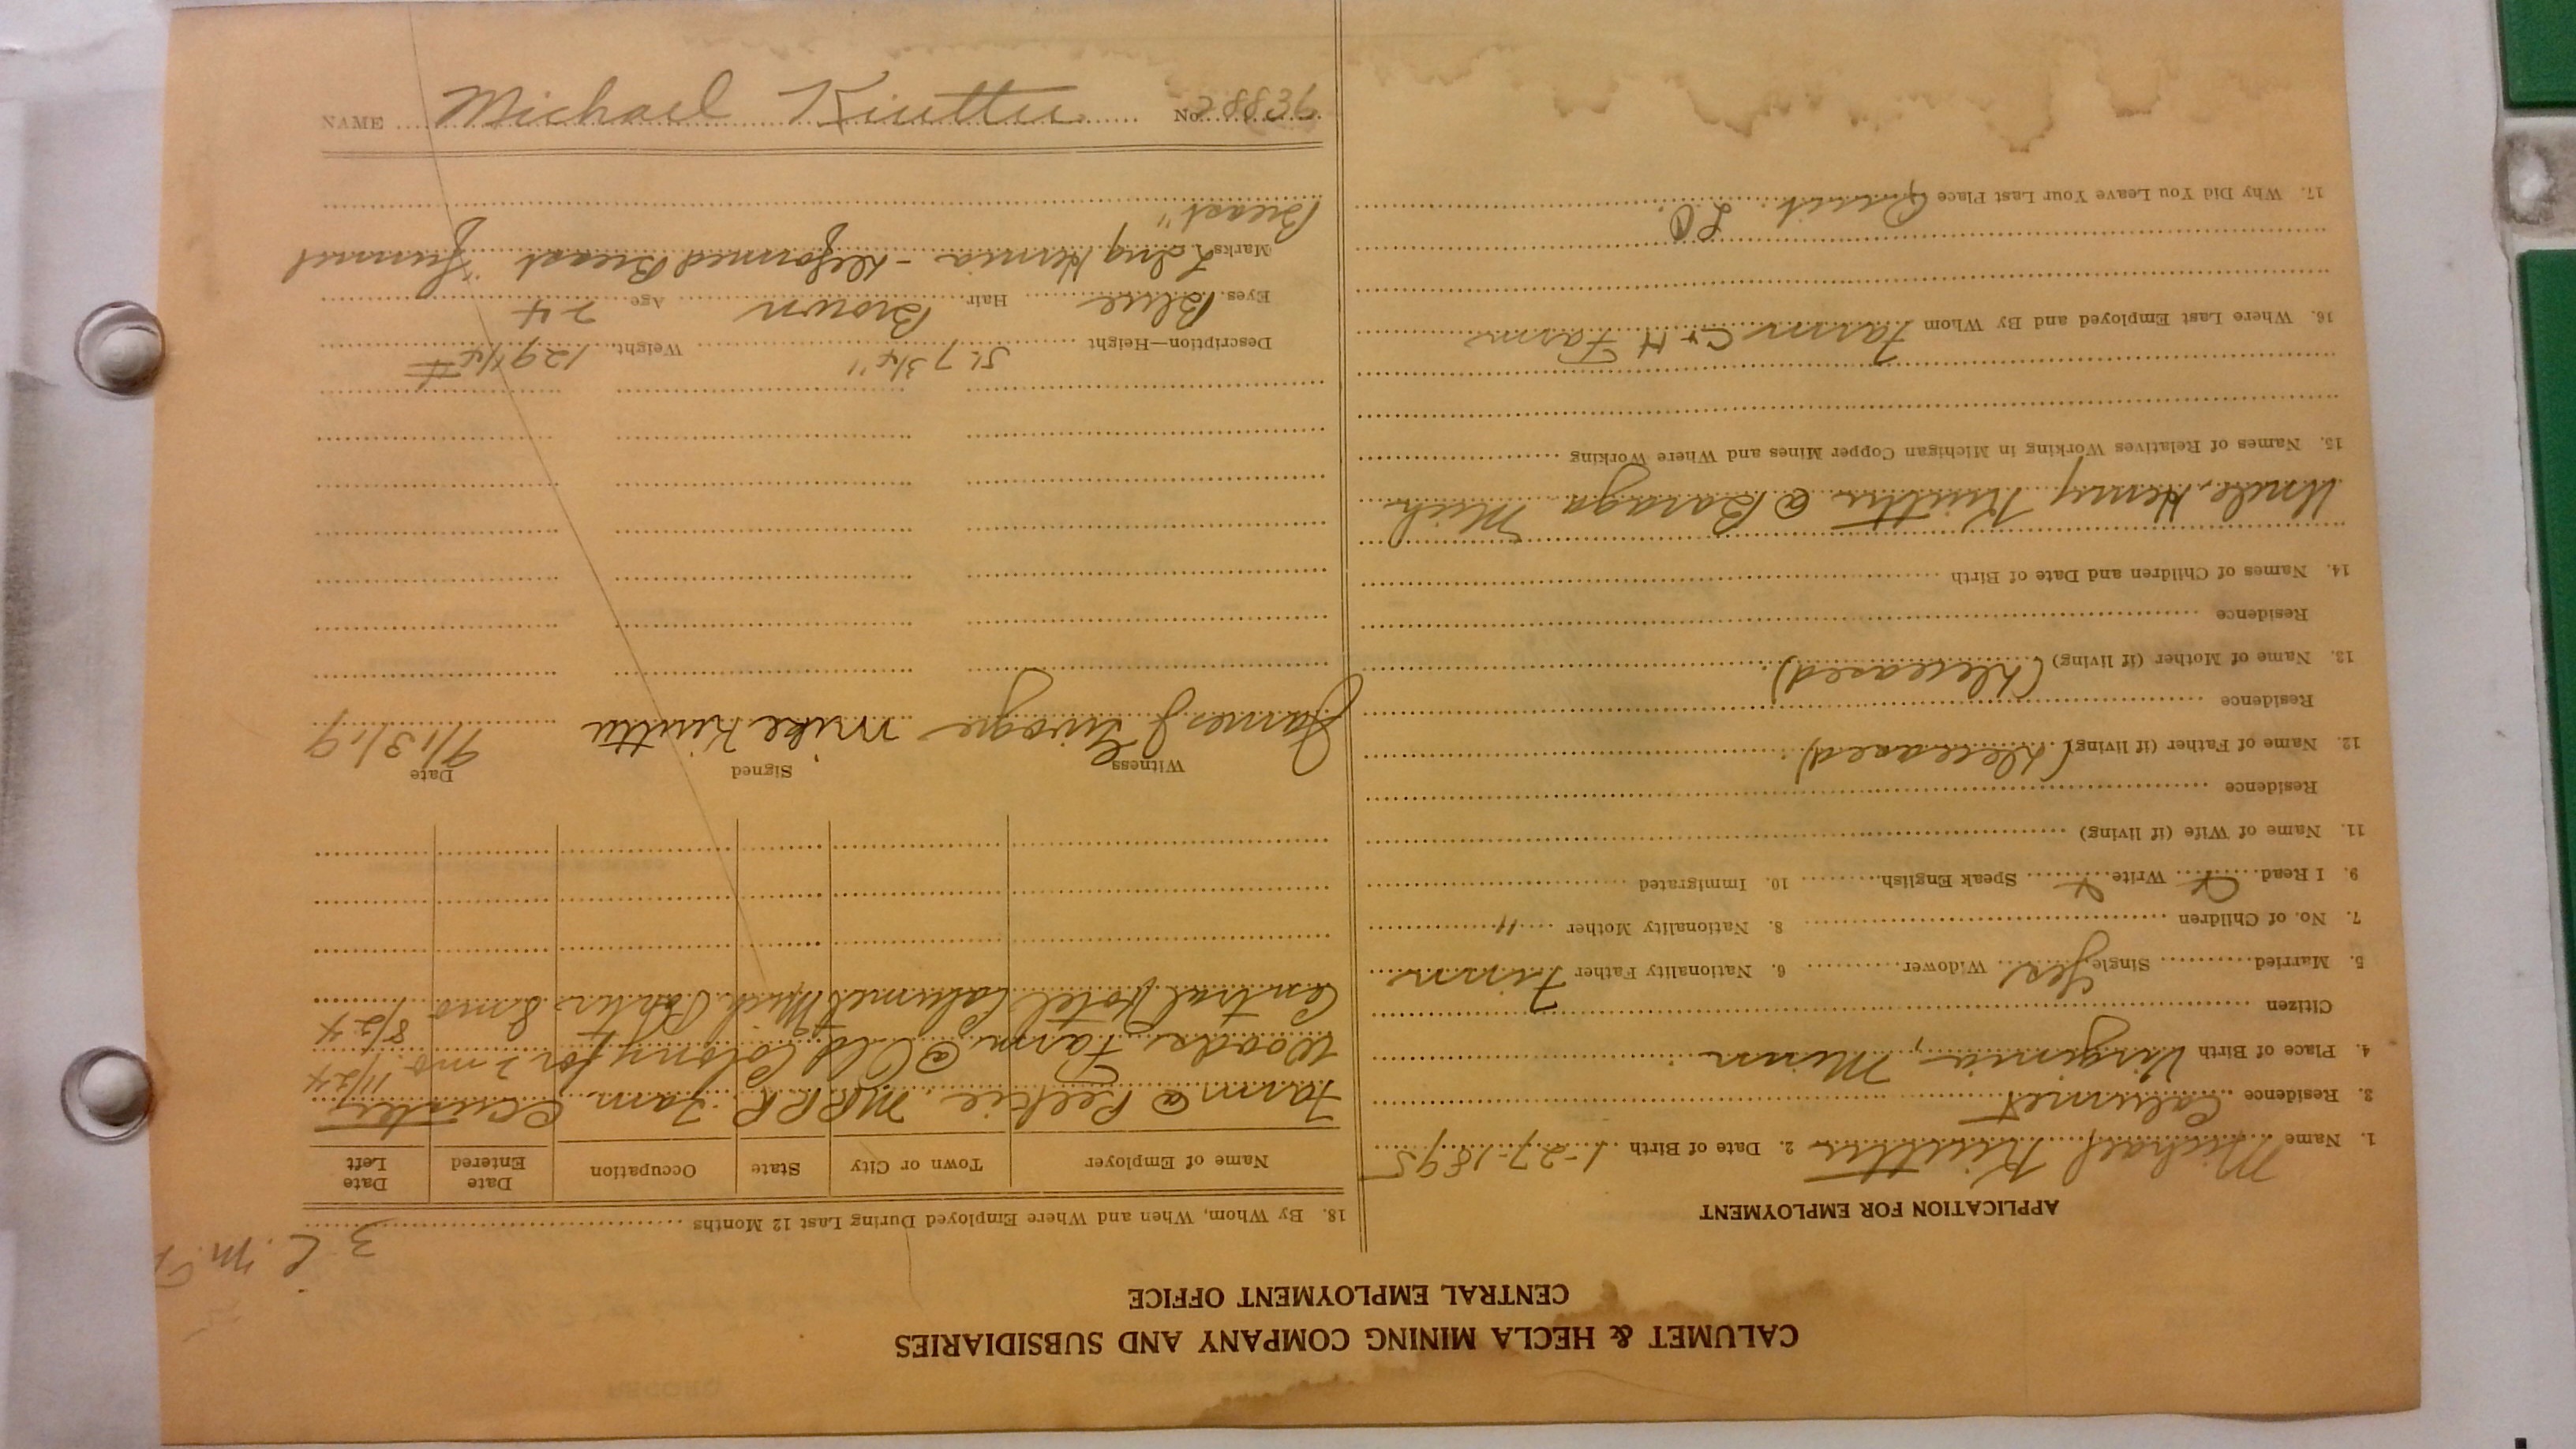 CALUMET & HECLA MINING COMPANY AND SUBSIDIARIES
CENTRAL EMPLOYMENT OFFICE
APPLICATION FOR EMPLOYMENT
1. Name Michael Kiuttu 2. Date of Birth 1-27-1895
3. Residence Calumet
4. Place of Birth Virginia, Minn
Citizen
5. Married Single Yes Widower 6. Nationality Father Finn
7. No. of Children 8. Nationality Mother "
9. I Read Write Speak English 10. Immigrated
11. Name of Wife (if living)
Residence
12. Name of Father (if living) (Deceased)
Residence
13. Name of Mother (if living) (Deceased)
Residence
14. Names of Children and Date of Birth
Uncle, Henry Kiuttu @ Baraga Mich
15. Names of Relatives Working in Michigan Copper Mines and Where Working
16. Where Last Employed and By Whom Farm C+H Farm
17. Why Did You Leave Your Last Place Quit.
3 C.M.
18. By Whom, When and Where Employed During Last 12 Months
Name of Employer Town or City State Occupation Date Entered Date Left
Farm @ Pelkie, M R R R Farm
Woods Farm @ Old Colony for 2 mo. 11/24
Central Hotel Calumet Mich. Porter 8 mo 8/24
Witness Signed Date
James J Mike Kiuttu 9/13/19
Description—Height 5' 7 3/4" Weight 129 1/4 #
Eyes Blue Hair Brown Age 24
Marks L Ing Hernia - Deformed Breast "Funnel
Breast"
NAME Michael Kiuttu No. 28836